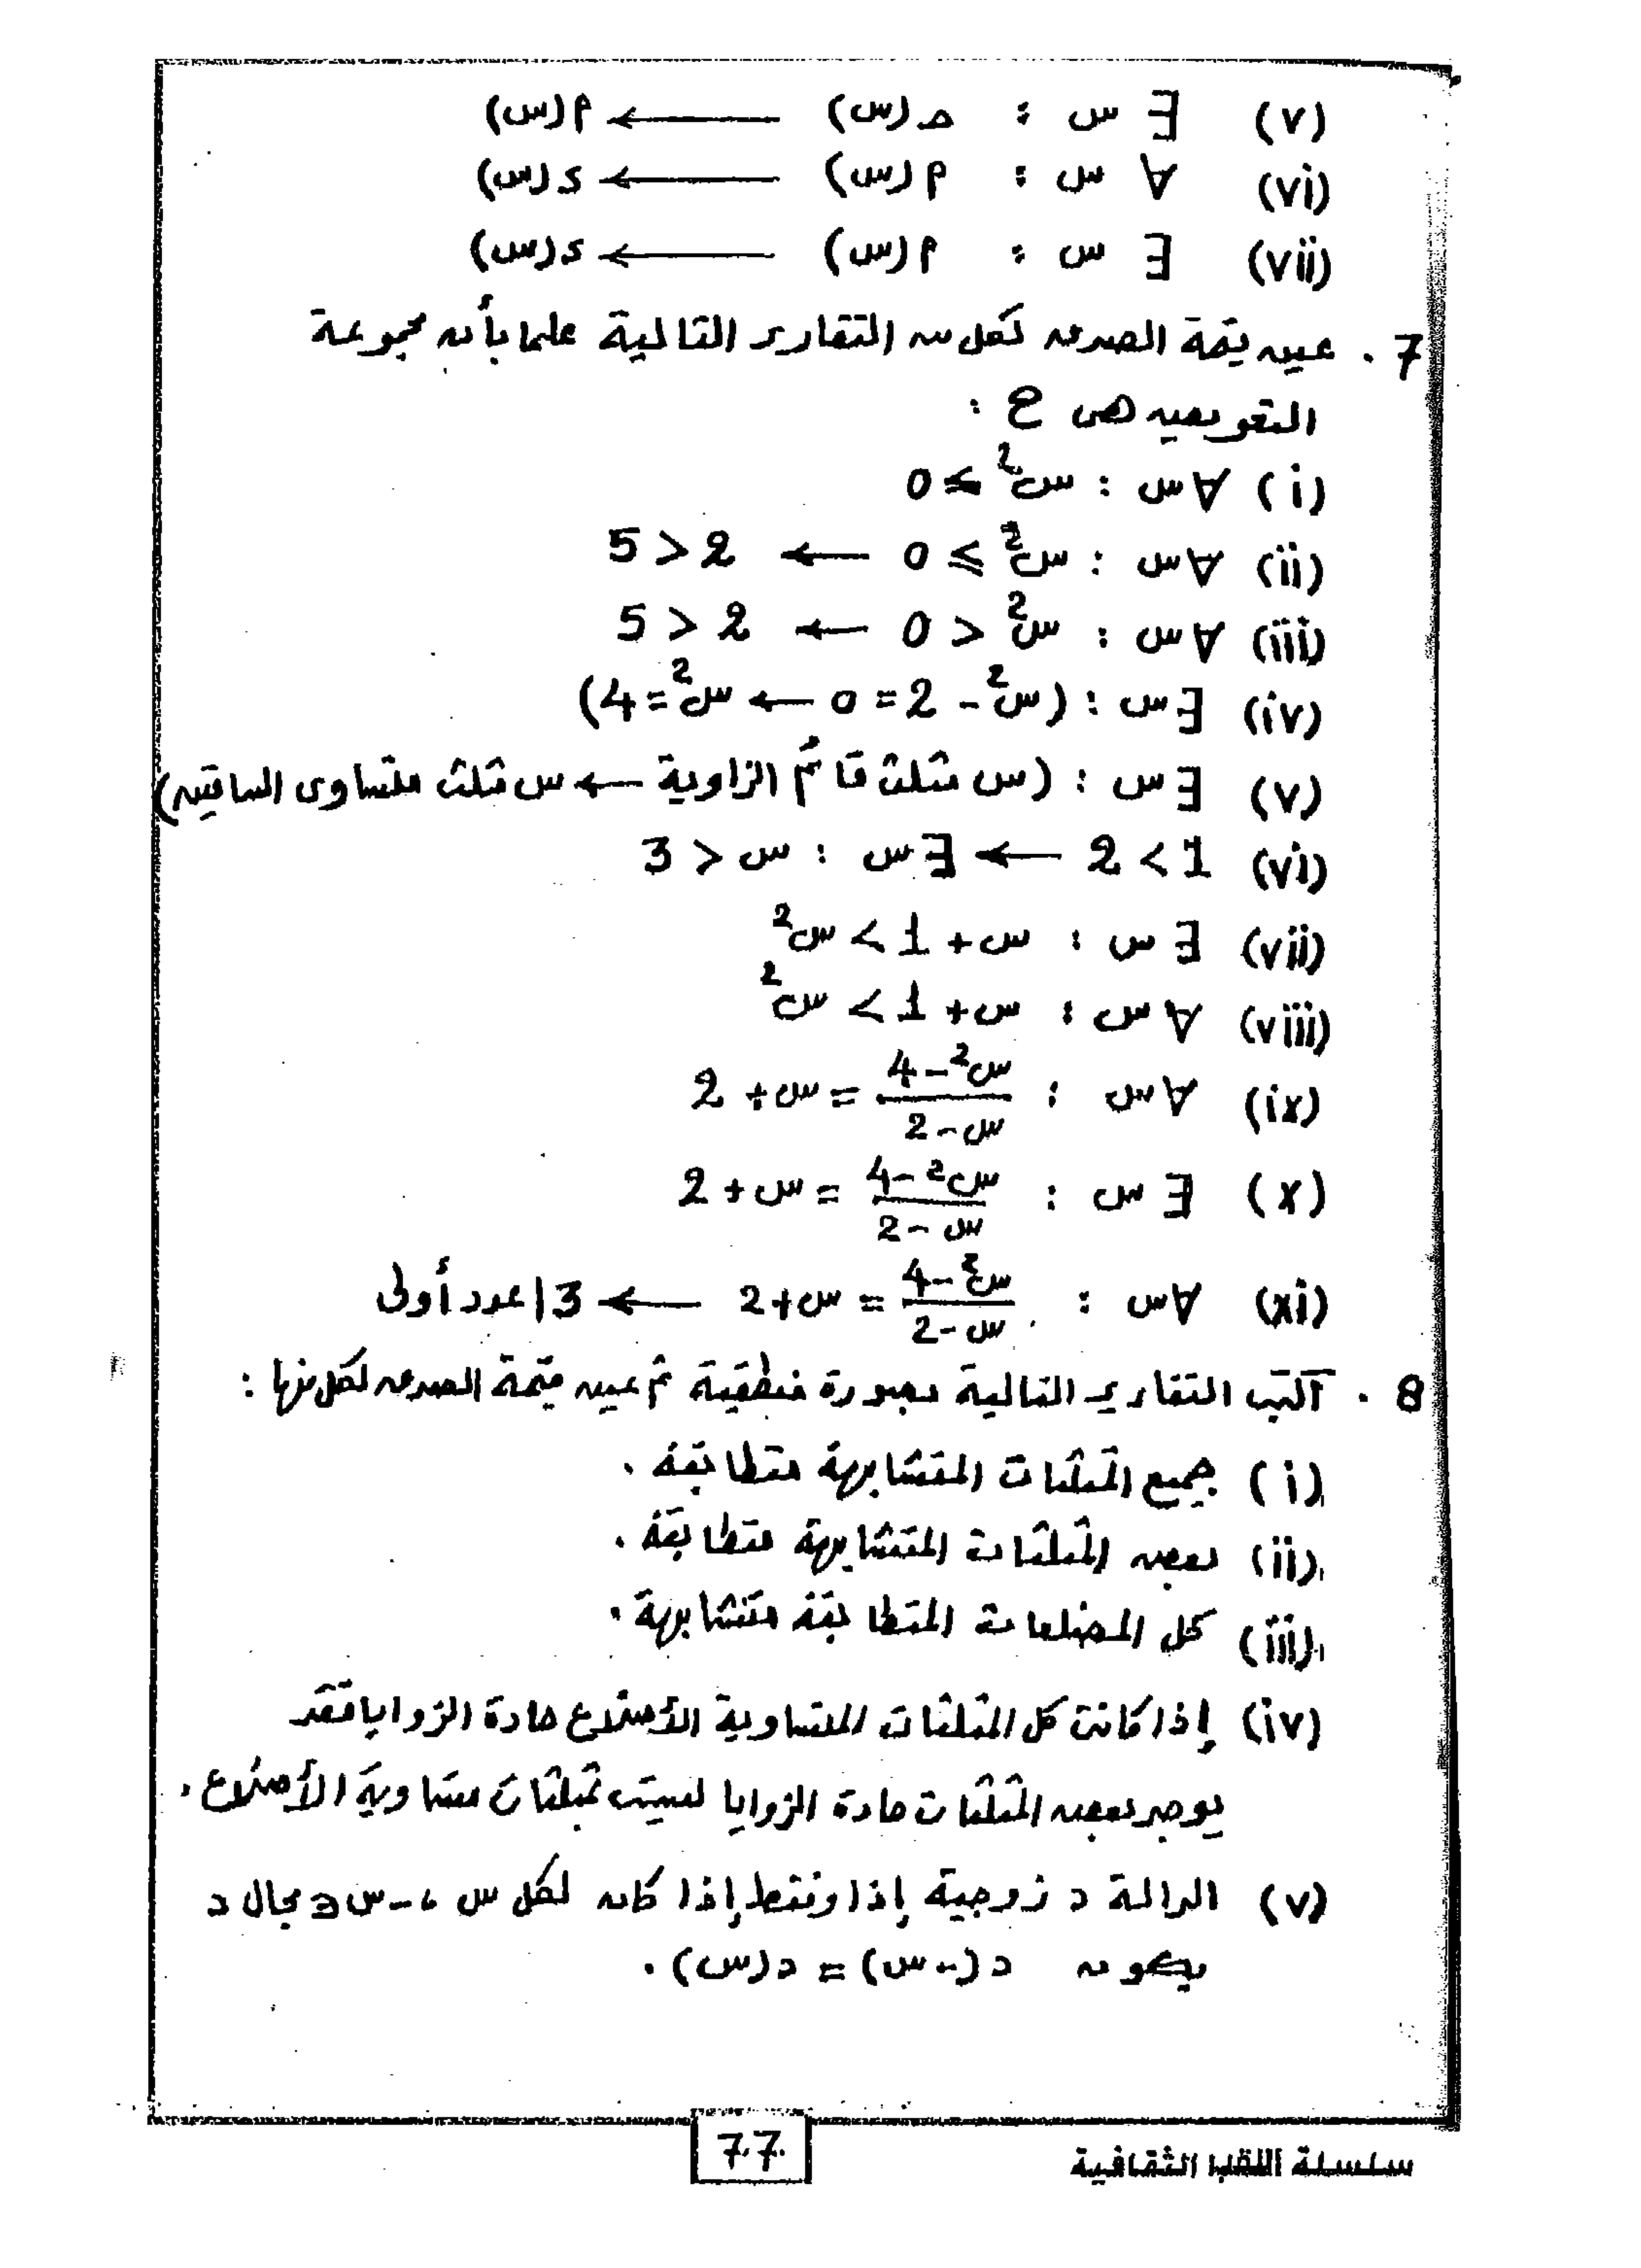 (v) ∃ س : ھ(س) ← م(س)
(vi) ∀ س : م(س) ← د(س)
(vii) ∃ س : م(س) ← د(س)
7 . عين قيمة الصدق لكل من التقارير التالية علما بأن مجموعة
التعويض هى ح :
(i) ∀ س : س² ≥ 0
(ii) ∀ س : س² ≥ 0 ← 2 < 5
(iii) ∀ س : س² > 0 ← 2 < 5
(iv) ∃ س : (س² - 2 = 0 ← س² = 4)
(v) ∃ س : (س مثلث قائم الزاوية ← س مثلث متساوى الساقين)
(vi) 1 > 2 ← ∃ س : س < 3
(vii) ∃ س : س + 1 > س²
(viii) ∀ س : س + 1 > س²
(ix) ∀ س : (س² - 4)/(س - 2) = س + 2
(x) ∃ س : (س² - 4)/(س - 2) = س + 2
(xi) ∀ س : (س² - 4)/(س - 2) = س + 2 ← 13 عدد أولى
8 . آكتب التقارير التالية بصورة منطقية ثم عين قيمة الصدق لكل منها :
(i) جميع المثلثات المتشابهة متطابقة .
(ii) بعض المثلثات المتشابهة متطابقة .
(iii) كل المضلعات المتطابقة متشابهة .
(iv) إذا كانت كل المثلثات المتساوية الأضلاع حادة الزوايا فقد
يوجد بعض المثلثات حادة الزوايا ليست مثلثات متساوية الأضلاع .
(v) الدالة د زوجية إذا وفقط إذا كان لكل س ، -س ∈ مجال د
يكون د(-س) = د(س) .
77
سلسلة اللقب الثقافية